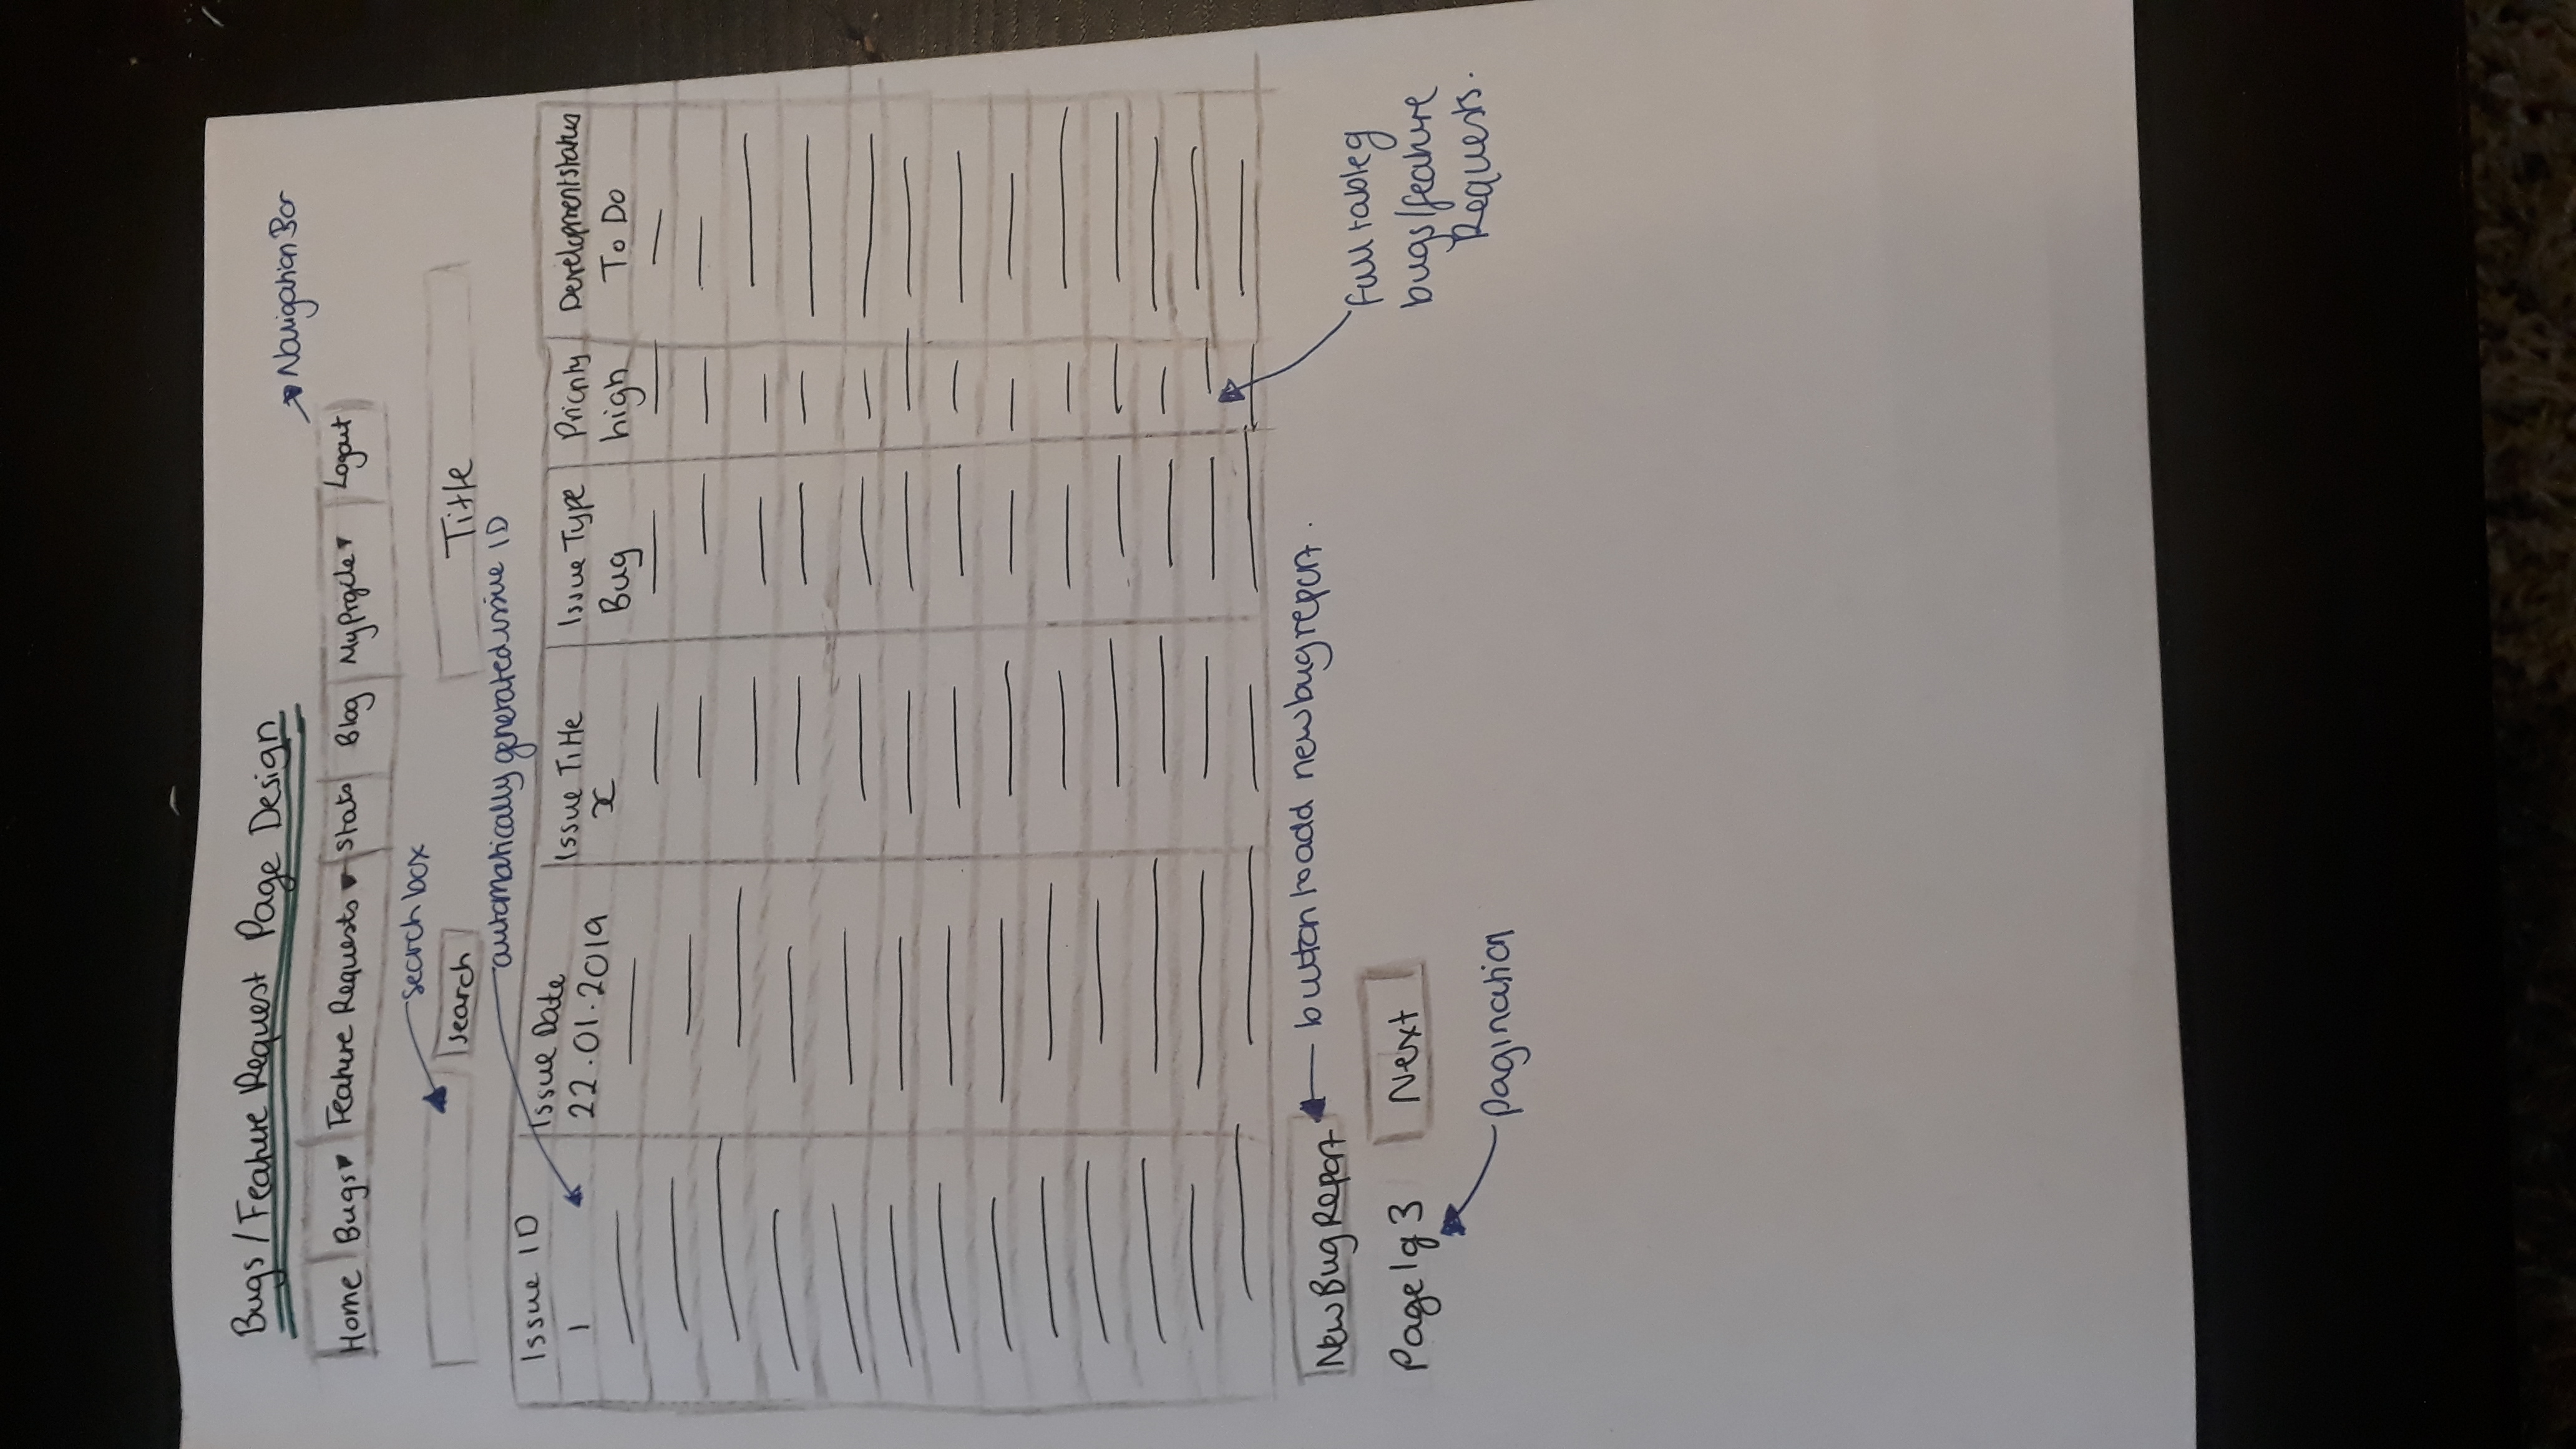 Bugs/Feature Request Page Design
Navigation Bar
Home Bugs▾ Feature Requests ▾ Stats Blog My Profile ▾ Logout
search box
search
Title
automatically generated issue ID
Issue ID Issue Date Issue Title Issue Type Priority Development status
1 22.01.2019 x Bug high To Do
New Bug Report
button to add new bug report.
Page 1 of 3 Next
Pagination
Full table of
bugs/feature
Requests.